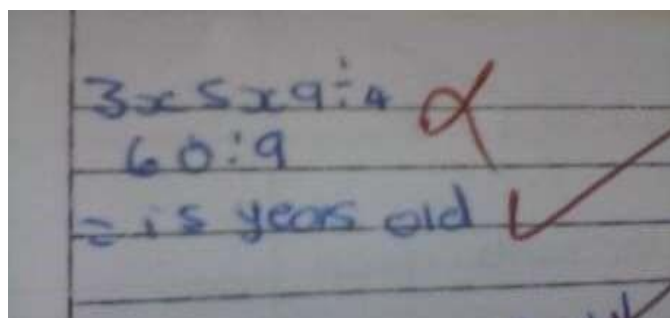 3 x 5 x 9 ÷ 4
60 ÷ 9
= 15 years old